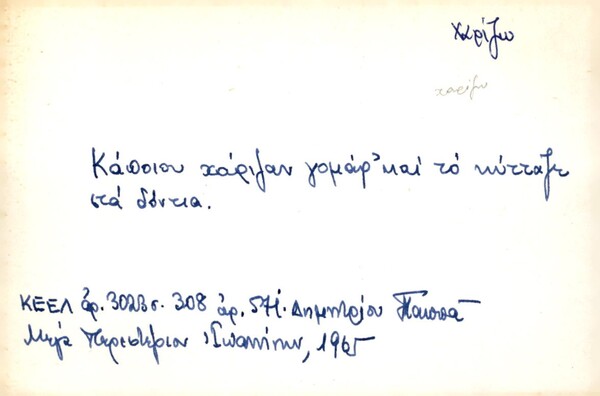 χαρίζω
χαρίζω
Κάποιου χάριζαν γομάρ' καί τό κύτταζε
στά δόντια.
ΚΕΕΛ ἀρ. 3023 σ. 308 ἀρ. 571. Δημητρίου Παππᾶ
Μεγά Περιστέριον Ἰωαννίνων, 1965